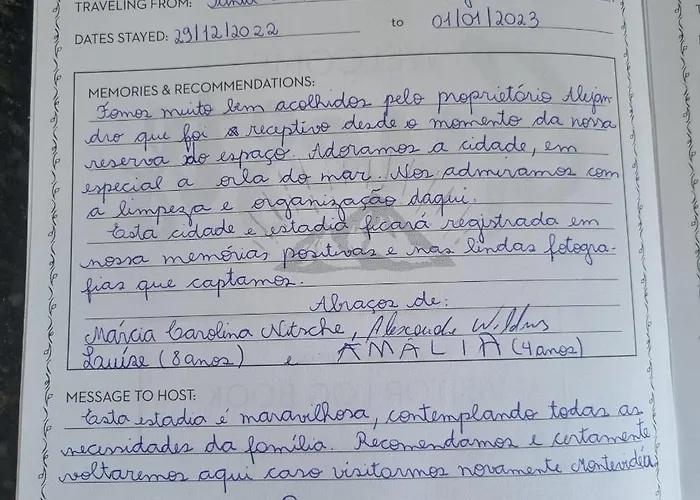 TRAVELING FROM:
DATES STAYED: 29/12/2022 to 01/01/2023
MEMORIES & RECOMMENDATIONS:
Fomos muito bem acolhidos pelo proprietório Alejan
dro que foi receptivo desde o momento da nossa
reserva do espaço. Adoramos a cidade, em
especial a orla do mar. Nos admiramos com
a limpeza e organização daqui.
Esta cidade e estadia ficará registrada em
nossa memórias positivas e nas lindas fotogra-
fias que captamos.
Abraços de:
Márcia Carolina Nitsche, Alexandre
Lauíse (8 anos) e AMÁLIA (4 anos)
MESSAGE TO HOST:
Esta estadia é maravilhosa, contemplando todas as
necessidades da família. Recomendamos e certamente
voltaremos aqui caso visitarmos novamente Montevidéa